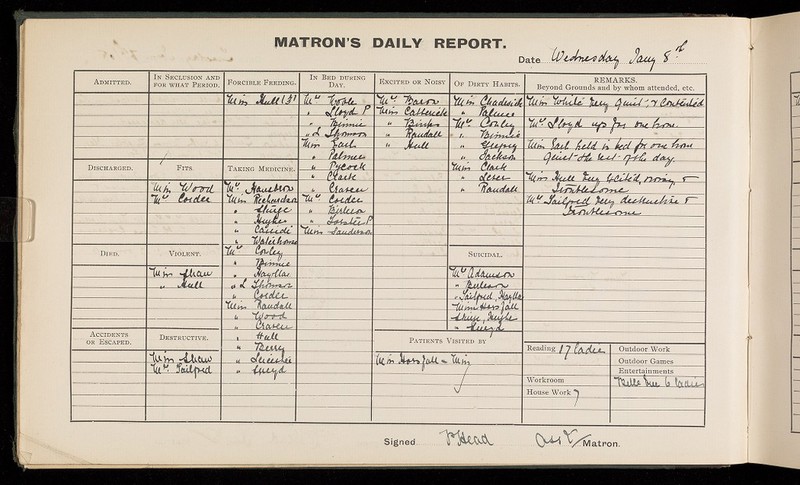 MATRON'S DAILY REPORT.
Date Wednesday Jany 8th
ADMITTED.
IN SECLUSION AND FOR WHAT PERIOD.
FORCIBLE FEEDING.
Miss Hull (3)
IN BED DURING DAY.
Mrs Noble
" Lloyd P
" Binnie
" L Thomson
Miss Earl
" Palmer
" Pycock
" Clark
" Craven
Mrs Corder
" Forster P
Miss Sanderson
EXCITED OR NOISY
Mrs Bacon
" Binks
" Randall
" Hull
OF DIRTY HABITS.
Miss Chadwick
" Palmer
Mrs Conley
" Binnie
" Gregory
" Jackson
Miss Clark
" Randall
REMARKS.
Beyond Grounds and by whom attended, etc.
Miss White very quiet & contented
Mrs Lloyd up for one hour.
Miss Earl held in bed for one hour
quiet the rest of the day.
Miss Hull very excited, noisy &
troublesome
Mrs Tailford very destructive &
troublesome
DISCHARGED.
FITS
Miss Wood
Mrs Corder
TAKING MEDICINE.
Miss Richardson
" Sturge
" Hughes
" Cassidi
" Waterhouse
Mrs Conley
" Binnie
" Hayllar
" L Thomson
" Corder
Miss Randall
" Wood
" Craven
" Hull
" Berry
DIED.
VIOLENT.
Miss Shaw
" Hull
SUICIDAL.
Mrs Adamson
" Tailford, Hayllar
Miss Horsfall
ACCIDENTS OR ESCAPED.
DESTRUCTIVE.
Miss Shaw
Mrs Tailford
PATIENTS VISITED BY
Miss Horsfall = Miss
Reading 17 ladies
Outdoor Work
Outdoor Games
Entertainments
Workroom
House Work 7
6 ladies
Signed Head Asst Matron.